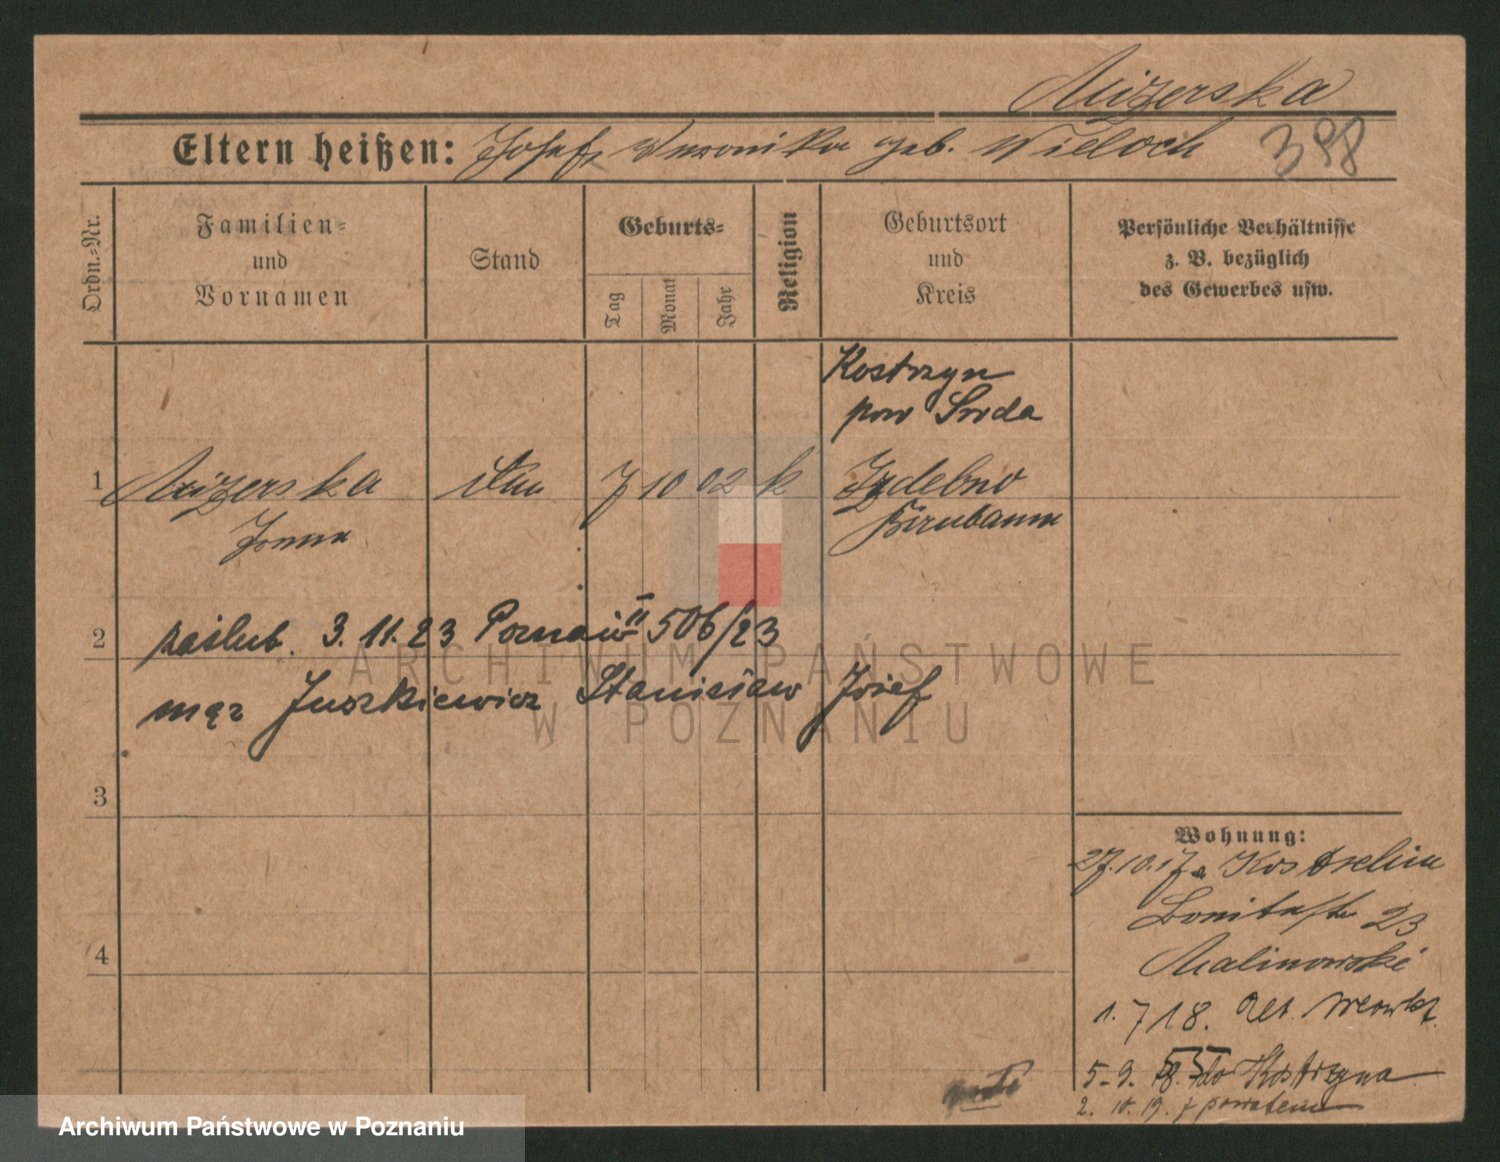 Mizerska
Eltern heißen: Josef, Weronika geb. Wieloch 398
Ordn.-Nr.
Familien-
und
Vornamen
Stand
Geburts-
Tag
Monat
Jahr
Religion
Geburtsort
und
Kreis
Persönliche Verhältnisse
z. B. bezüglich
des Gewerbes usw.
Kostrzyn
pow Środa
1 Mizerska 7 10 02 k Izdebno
Birnbaum
2 zaślub. 3.11.23 Poznań II 506/23
mąż Juszkiewicz Stanisław Józef
3
4
Wohnung:
27.10.17 Kostschin
23
Malinowski
1. 7 18.
55
5.9. 18. do Kostrzyna
2. 10. 19. z powrotem
ARCHIWUM PAŃSTWOWE
W POZNANIU
Archiwum Państwowe w Poznaniu